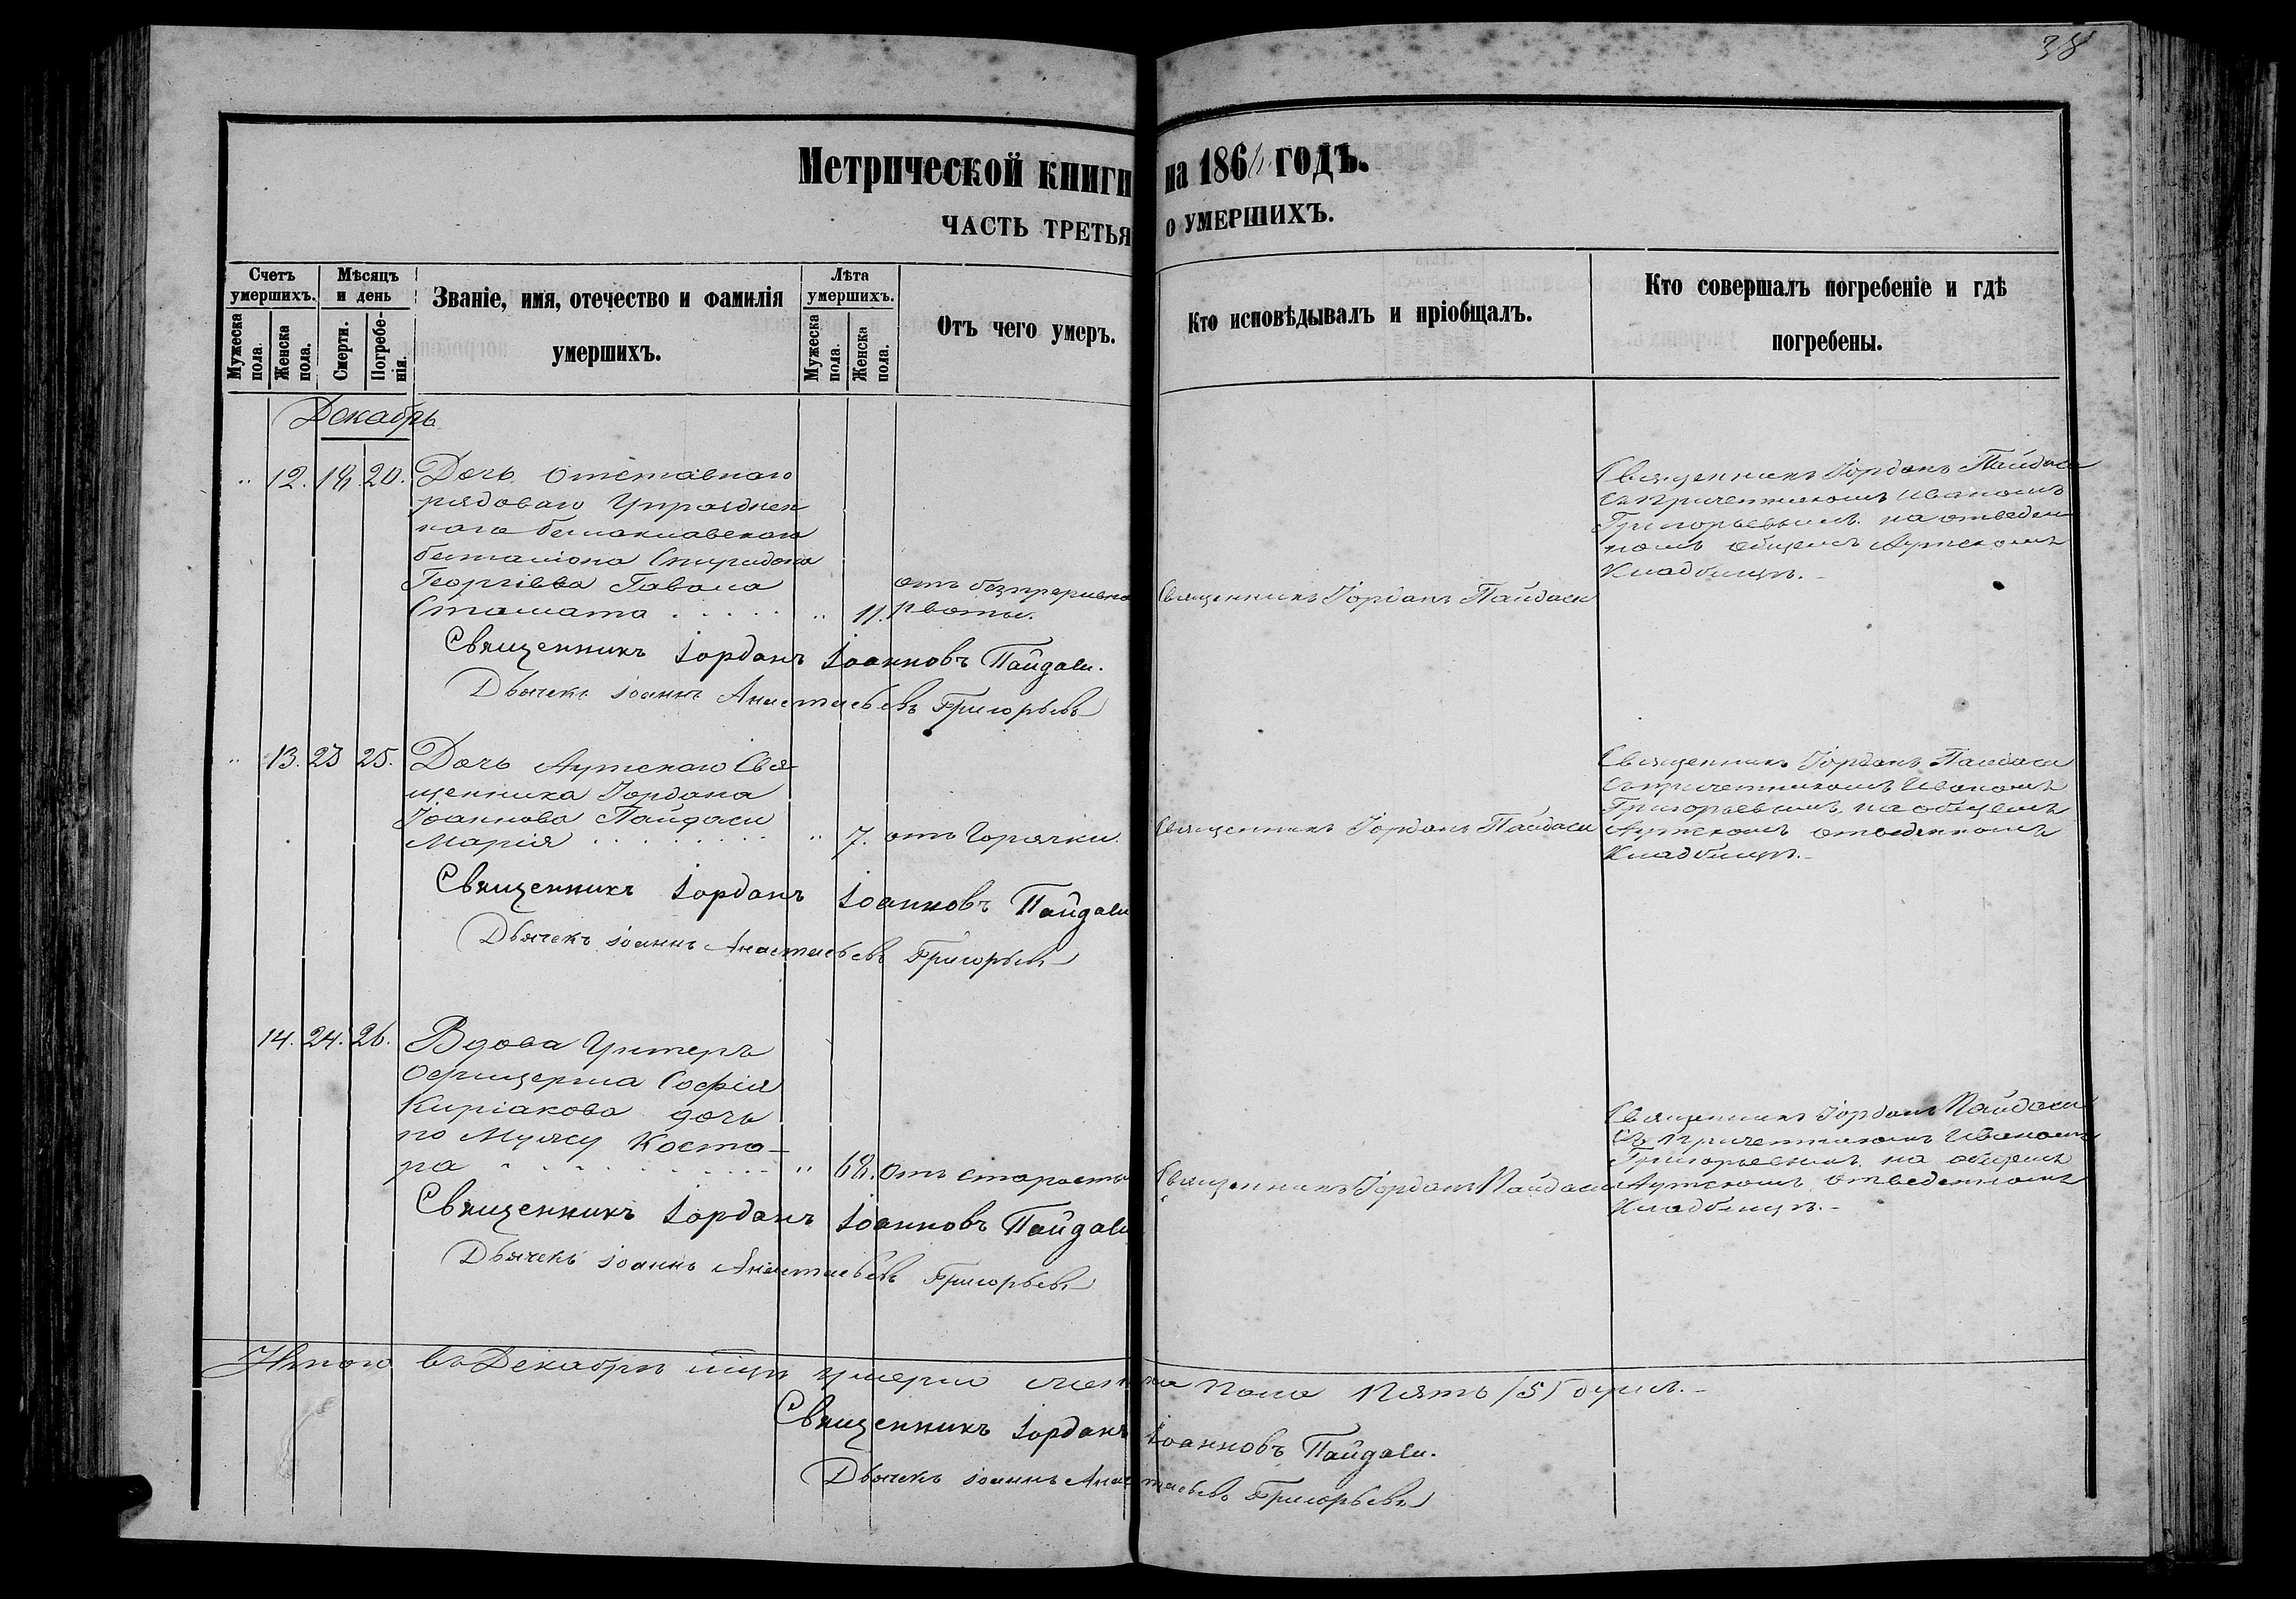 38
Метрической книги на 186 годъ.
ЧАСТЬ ТРЕТЬЯ О УМЕРШИХЪ.
Счетъ умершихъ.
Мужеска пола.
Женска пола.
Мѣсяцъ и день
Смерти.
Погребенія.
Званіе, имя, отечество и фамилія умершихъ.
Лѣта умершихъ.
Мужеска пола.
Женска пола.
Отъ чего умеръ.
Кто исповѣдывалъ и пріобщалъ.
Кто совершалъ погребеніе и гдѣ погребены.
Декабрь
" 12. 20. Дочь отставнаго
рядоваго Упразднен
наго балаклавскаго
баталіона Спиридона
Георгіева
Стамата . . . . . " 11. рвоты.
Священникъ Іорданъ Пайдаси
Священникъ Іорданъ Пайдаси
съ причетникомъ Иваномъ
Григорьевымъ на отведен
номъ общемъ Аутскомъ
Кладбищѣ.
Священникъ Іорданъ Іоанновъ Пайдаси.
Дьячекъ Іоаннъ Анастасьевъ Григорьевъ
" 13. 23 25. Дочь Аутскаго Свя
щенника Іордана
Іоаннова Пайдаси
Марія . . . . . . . " 7. отъ Горячки.
Священникъ Іорданъ Пайдаси
Священникъ Іорданъ Пайдаси
съ причетникомъ Иваномъ
Григорьевымъ на общемъ
Аутскомъ отведенномъ
Кладбищѣ.
Священникъ Іорданъ Іоанновъ Пайдаси
Дьячекъ Іоаннъ Анастасьевъ Григорьевъ
14. 24. 26. Вдова Унтеръ
офицерша Софія
Киріакова дочь
по Мужу Коста-
ра . . . . . . . " 68. отъ старости
Священникъ Іорданъ Пайдаси
Священникъ Іорданъ Пайдаси
Съ причетникомъ Иваномъ
Григорьевымъ на общемъ
Аутскомъ отведенномъ
Кладбищѣ.
Священникъ Іорданъ Іоанновъ Пайдаси
Дьячекъ Іоаннъ Анастасьевъ Григорьевъ
Итого въ Декабрѣ мцѣ умерло женска пола пять /5/ душъ.
Священникъ Іорданъ Іоанновъ Пайдаси.
Дьячекъ Іоаннъ Анастасьевъ Григорьевъ